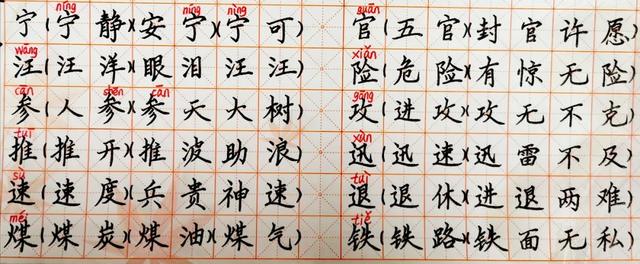 níng níng nìng guān
宁(宁静)(安宁)(宁可) 官(五官)(封官许愿)
wāng xiǎn
汪(汪洋)(眼泪汪汪) 险(危险)(有惊无险)
cān shēn cān gōng
参(人参)(参天大树) 攻(进攻)(攻无不克)
tuī xùn
推(推开)(推波助浪) 迅(迅速)(迅雷不及)
sù tuì
速(速度)(兵贵神速) 退(退休)(进退两难)
méi tiě
煤(煤炭)(煤油)(煤气) 铁(铁路)(铁面无私)